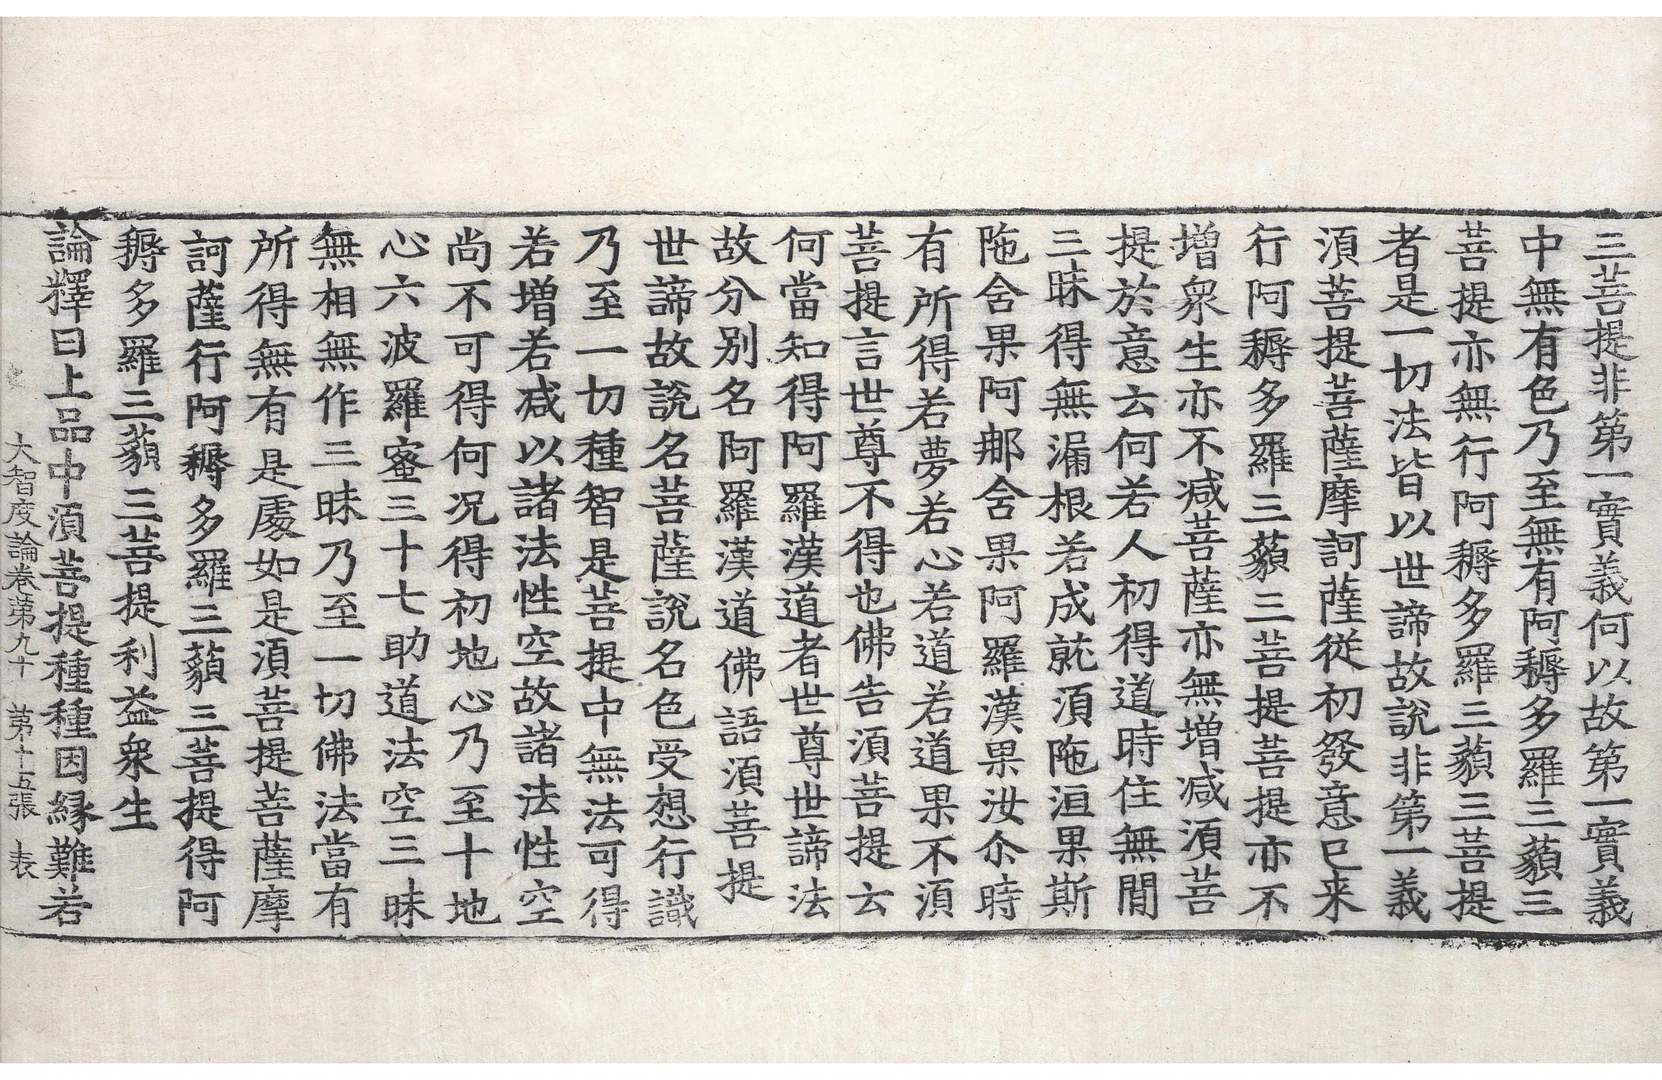 三菩提非第一實義何以故第一實義
中無有色乃至無有阿耨多羅三藐三
菩提亦無行阿耨多羅三藐三菩提
者是一切法皆以世諦故說非第一義
須菩提菩薩摩訶薩從初發意已来
行阿耨多羅三藐三菩提菩提亦不
增衆生亦不减菩薩亦無增减須菩
提於意云何若人初得道時住無閒
三昧得無漏根若成就須陁洹果斯
陁含果阿那含果阿羅漢果汝尒時
有所得若夢若心若道若道果不須
菩提言世尊不得也佛告須菩提云
何當知得阿羅漢道者世尊世諦法
故分別名阿羅漢道佛語須菩提
世諦故說名菩薩說名色受想行識
乃至一切種智是菩提中無法可得
若增若减以諸法性空故諸法性空
尚不可得何况得初地心乃至十地
心六波羅蜜三十七助道法空三昧
無相無作三昧乃至一切佛法當有
所得無有是處如是須菩提菩薩摩
訶薩行阿耨多羅三藐三菩提得阿
耨多羅三藐三菩提利益衆生
論釋曰上品中須菩提種種因緣難若
大智度論卷第九十 第十五張 表